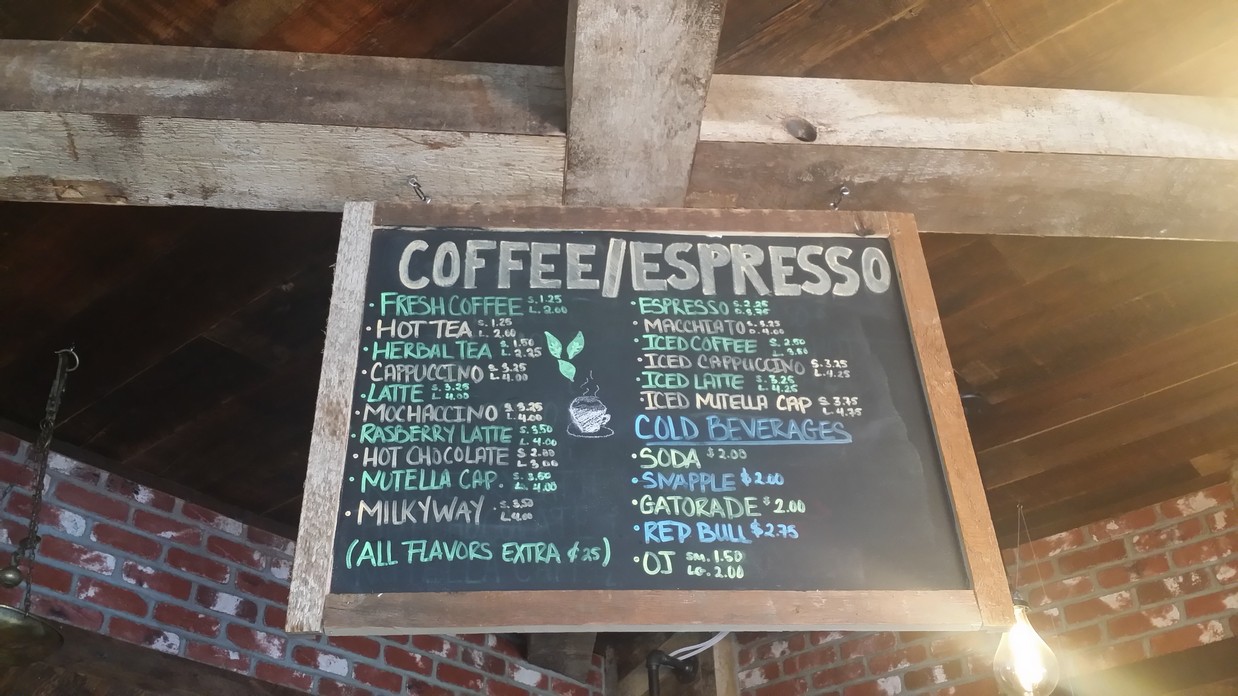 COFFEE/ESPRESSO
• FRESH COFFEE S. 1.25 L. 2.00
• HOT TEA S. 1.25 L. 2.00
• HERBAL TEA S. 1.50 L. 2.25
• CAPPUCCINO S. 3.25 L. 4.00
• LATTE S. 3.25 L. 4.00
• MOCHACCINO S. 3.25 L. 4.00
• RASBERRY LATTE S. 3.50 L. 4.00
• HOT CHOCOLATE S. 2.00 L. 3.00
• NUTELLA CAP. S. 3.50 L. 4.00
• MILKYWAY . S. 3.50 L. 4.00
(ALL FLAVORS EXTRA ¢25)
• ESPRESSO S. 2.25
• MACCHIATO S. 3.25 D. 4.00
• ICED COFFEE S. 2.50 L. 3.50
• ICED CAPPUCCINO S. 3.25 L. 4.25
• ICED LATTE S. 3.25 L. 4.25
• ICED NUTELLA CAP S. 3.75 L. 4.75
COLD BEVERAGES
• SODA $2.00
• SNAPPLE $2.00
• GATORADE $2.00
• RED BULL $2.75
• OJ SM. 1.50 LG. 2.00